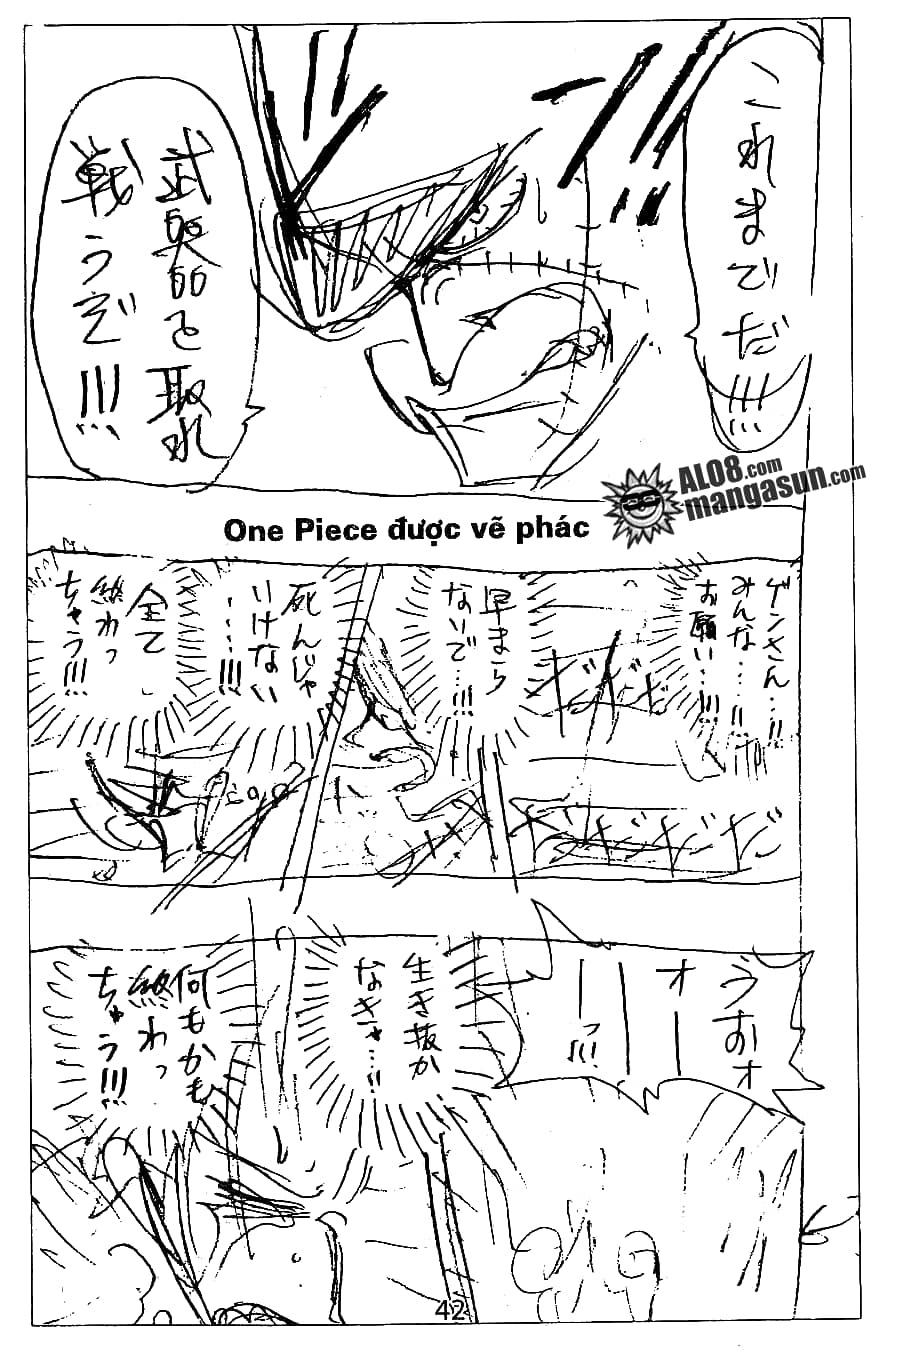 これまでだ!!!
武器を取れ
戦うぞ!!!
AL08.com
mangasun.com
One Piece được vẽ phác
ゲンさん…!!
みんな…!!
お願い…!!!
早まら
ないで…!!!
死んじゃ
いけない
…!!!
全て
終わっ
ちゃう!!!
だだだ
だだだだだ
うおォ
オーー
ーーっ!!!
生き抜か
なきゃ…!!
何もかも
終わっ
ちゃう!!!
42